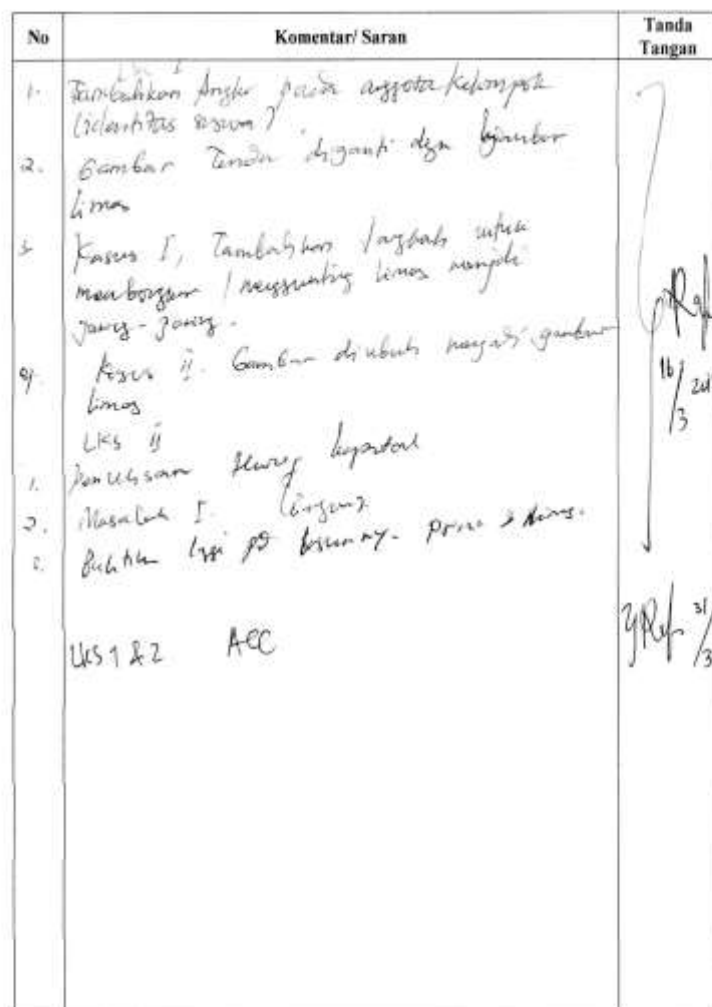 No Komentar/ Saran Tanda Tangan
1. Tambahkan Angka pada anggota kelompok
(identitas siswa)
2. Gambar Tenda diganti dgn gambar
limas
3. Kasus I, Tambahkan langkah untuk
membongkar / menggunting limas menjadi
jaring-jaring.
4. Kasus II. Gambar diubah menjadi gambar
limas
LKS II
1. Penulisan
2. Masalah I.
3. lagi
16/3
LKS 1 & 2 ACC
31/3